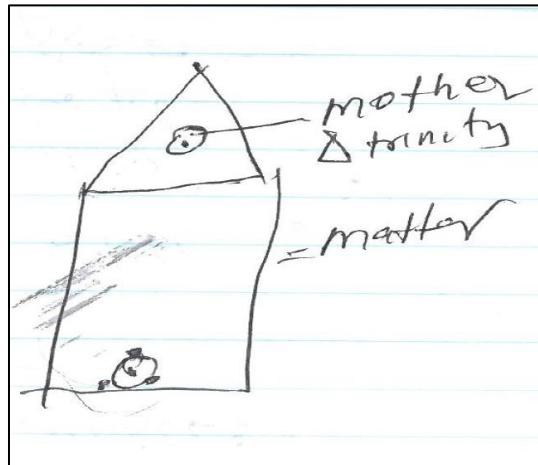 mother
Δ trinity
= matter